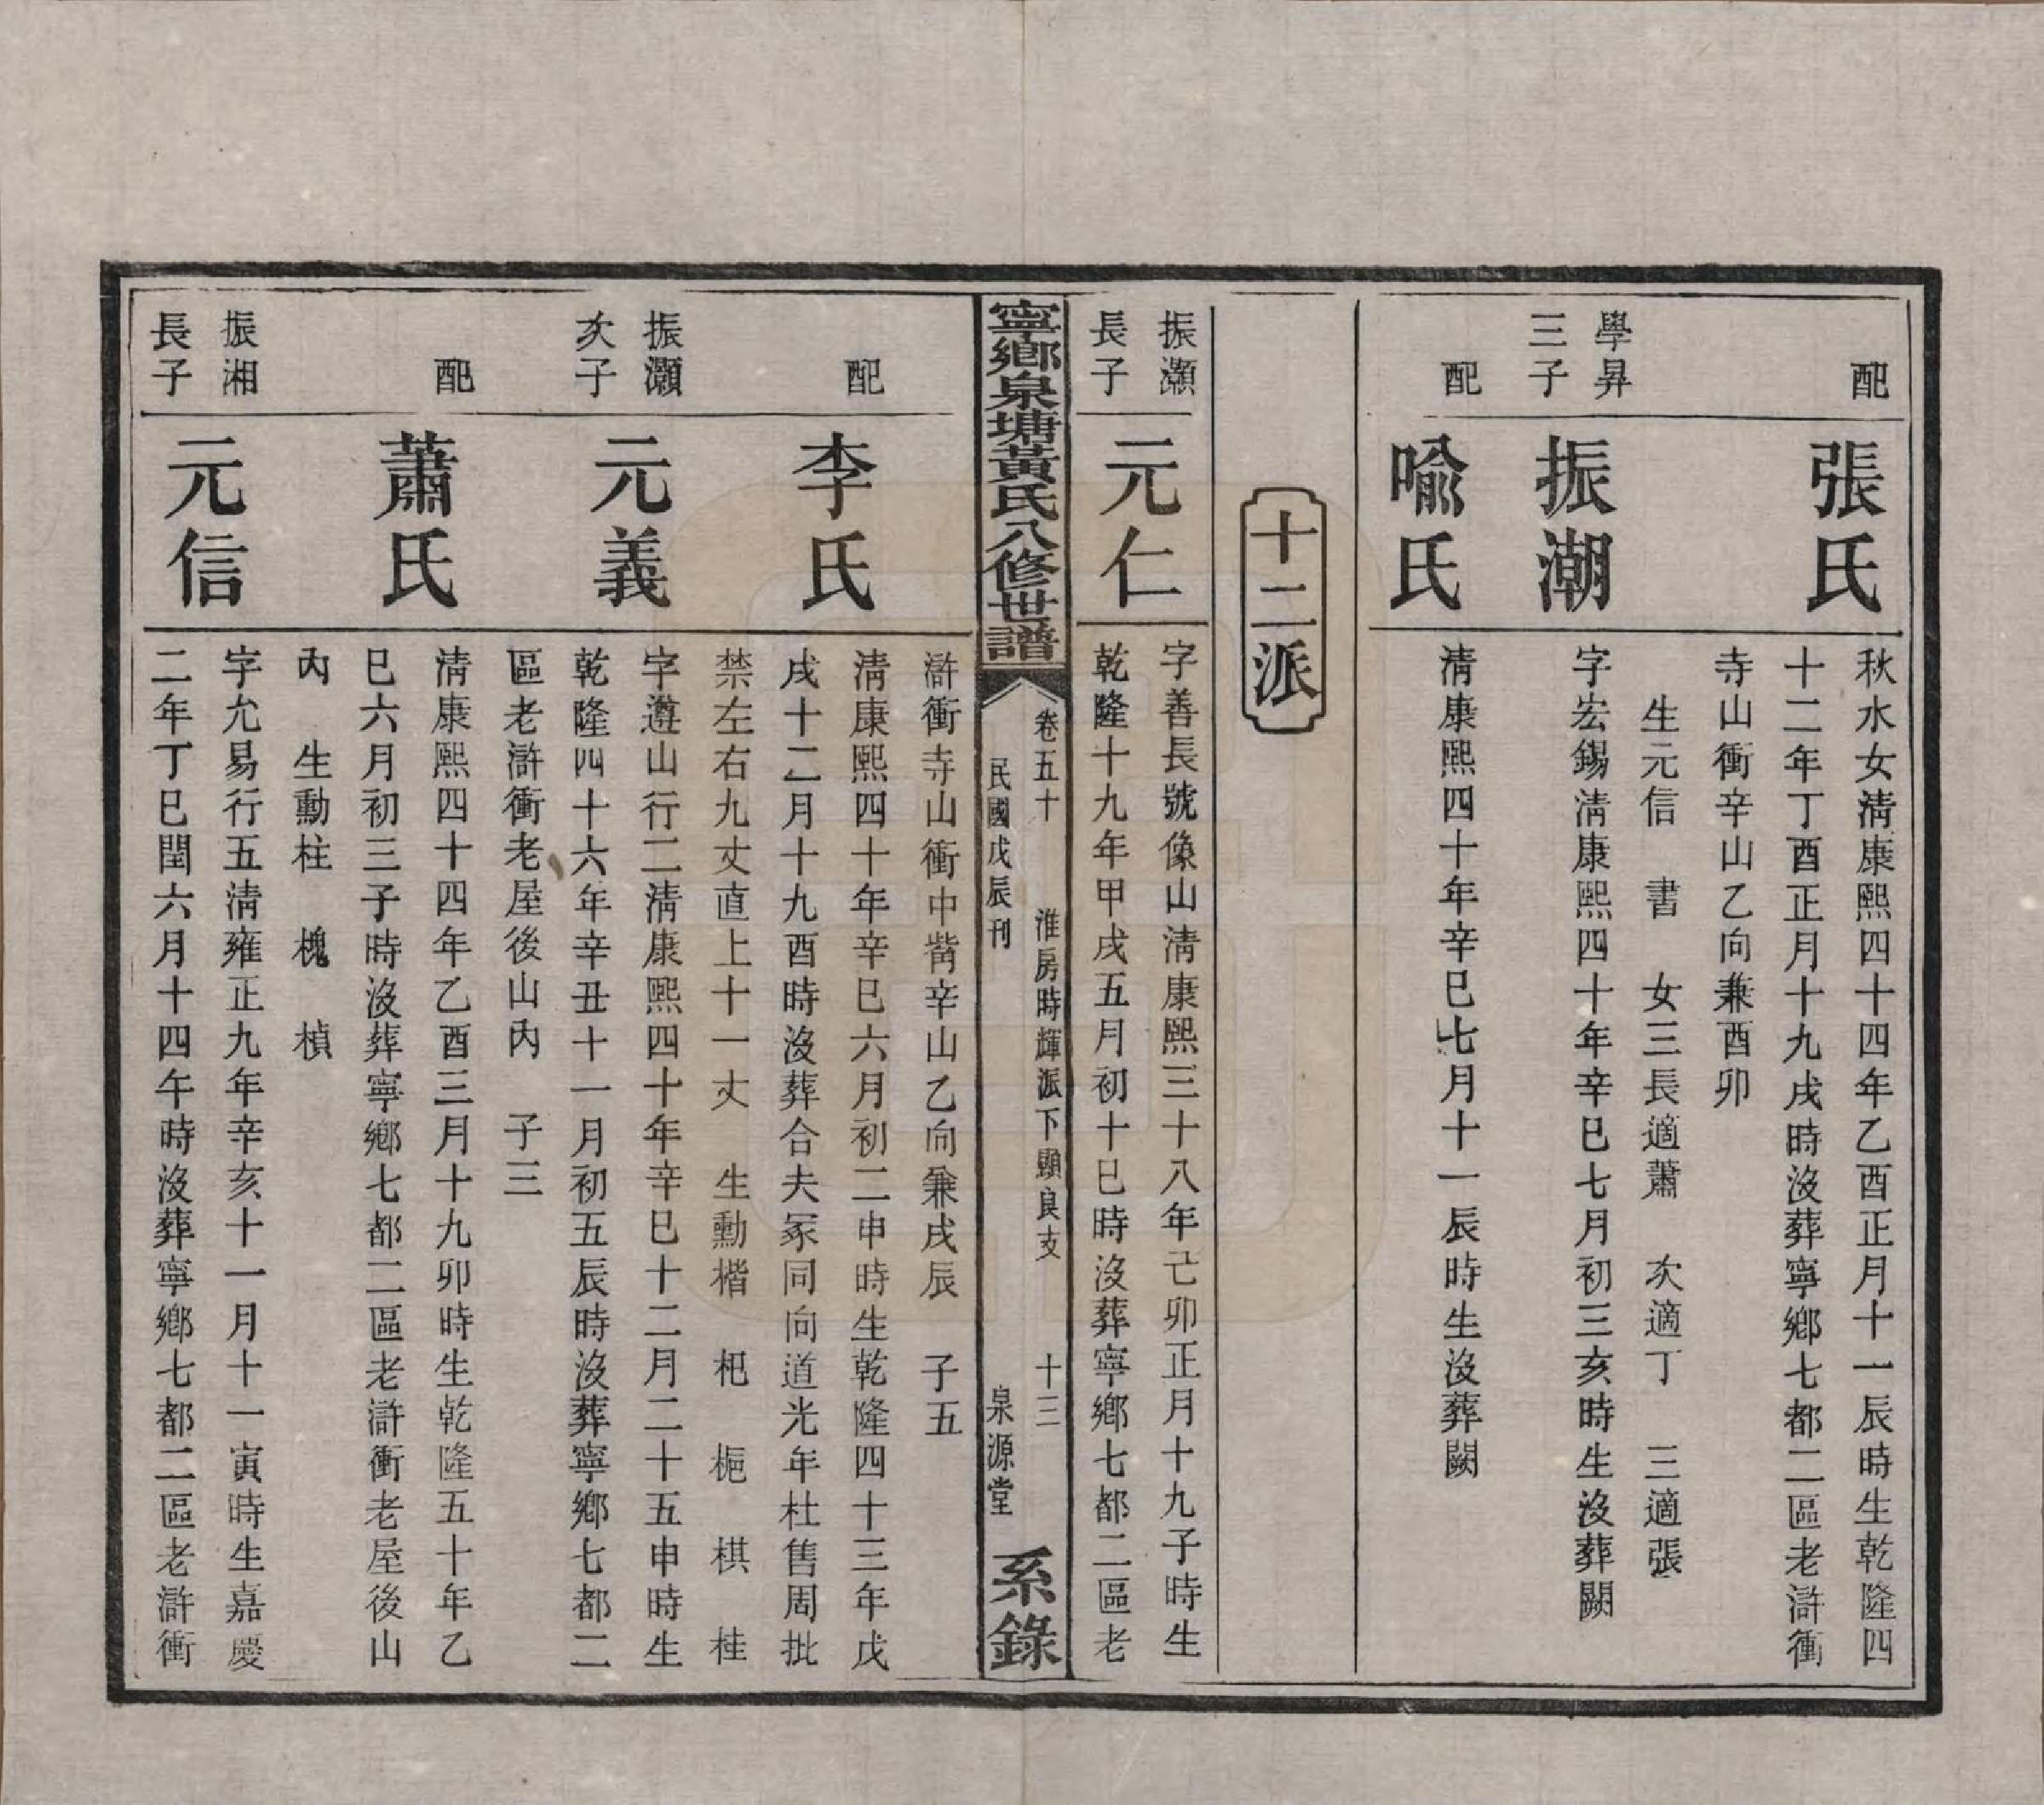 配
張氏
秋水女淸康熙四十四年乙酉正月十一辰時生乾隆四
十二年丁酉正月十九戌時沒葬寧鄉七都二區老滸衝
寺山衝辛山乙向兼酉卯
生元信　書　女三長適蕭　次適丁　三適張
學昇
三子
振潮
字宏錫淸康熙四十年辛巳七月初三亥時生沒葬闕
配
喩氏
淸康熙四十年辛巳七月十一辰時生沒葬闕
十二派
振灝
長子
元仁
字善長號像山淸康熙三十八年己卯正月十九子時生
乾隆十九年甲戌五月初十巳時沒葬寧鄉七都二區老
寧鄉泉塘黃氏八修世譜
卷五十　淮房時輝派下顯良支　十三
民國戊辰刊　泉源堂
系錄
滸衝寺山衝中嘴辛山乙向兼戌辰　子五
配
李氏
淸康熙四十年辛巳六月初二申時生乾隆四十三年戊
戌十二月十九酉時沒葬合夫冢同向道光年杜售周批
禁左右九丈直上十一丈　生勳楷　杞　梔　棋　桂
振灝
次子
元義
字遵山行二淸康熙四十年辛巳十二月二十五申時生
乾隆四十六年辛丑十一月初五辰時沒葬寧鄉七都二
區老滸衝老屋後山內　子三
配
蕭氏
淸康熙四十四年乙酉三月十九卯時生乾隆五十年乙
巳六月初三子時沒葬寧鄉七都二區老滸衝老屋後山
內　生勳柱　槐　楨
振湘
長子
元信
字允易行五淸雍正九年辛亥十一月十一寅時生嘉慶
二年丁巳閏六月十四午時沒葬寧鄉七都二區老滸衝